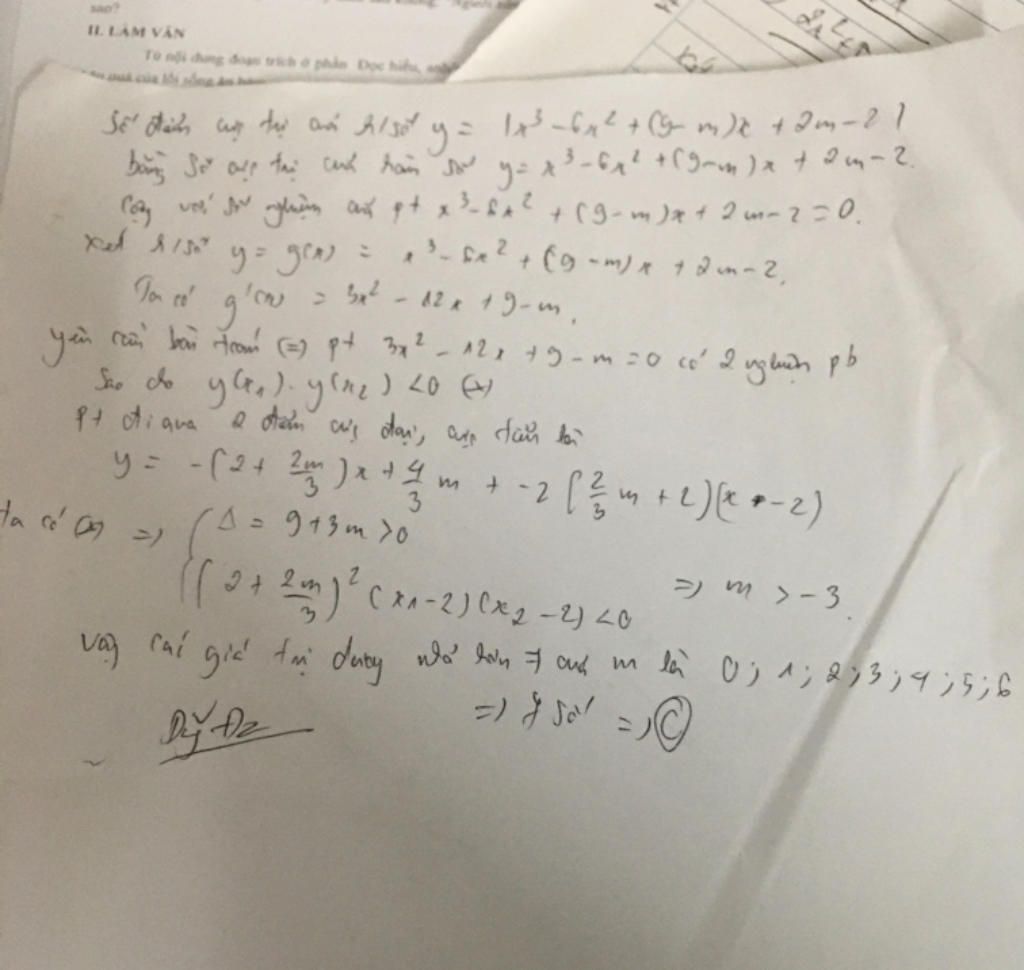 sao?
II. LÀM VĂN
Từ nội dung đoạn trích ở phần Đọc hiểu, anh
quả của lối sống ăn bám
Số điểm cực trị của h/số y = |x³ - 6x² + (9-m)x + 2m - 2|
bằng số cực trị của hàm số y = x³ - 6x² + (9-m)x + 2m - 2.
Cộng với số nghiệm của pt x³ - 6x² + (9-m)x + 2m - 2 = 0.
Xét h/số y = g(x) = x³ - 6x² + (9-m)x + 2m - 2.
Ta có g'(x) = 3x² - 12x + 9 - m.
yêu cầu bài toán (=) pt 3x² - 12x + 9 - m = 0 có 2 nghiệm pb
Sao cho y(x₁).y(x₂) < 0 (*)
pt đi qua 2 điểm cực đại, cực tiểu là
y = -(2 + 2m/3)x + 4/3 m + -2 (2/3 m + 2)(x - 2)
ta có (*) => { Δ = 9 + 3m > 0
(2 + 2m/3)² (x₁ - 2)(x₂ - 2) < 0 => m > -3.
Vậy các giá trị nhỏ hơn 7 của m là 0; 1; 2; 3; 4; 5; 6
=> 7 số => C